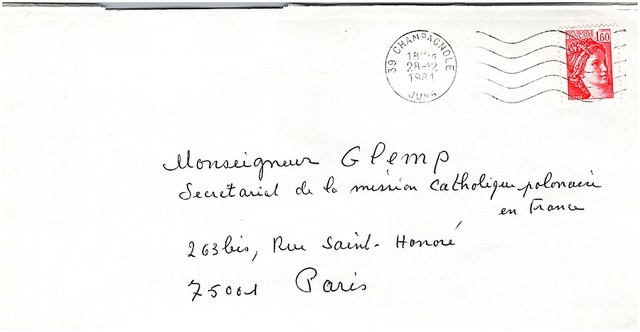 39 CHAMPAGNOLE
18H
28-12
1981
JURA
1,60
Monseigneur Glemp
Secretariat de la mission catholique polonaise
en France
263bis, Rue Saint-Honoré
75001 Paris